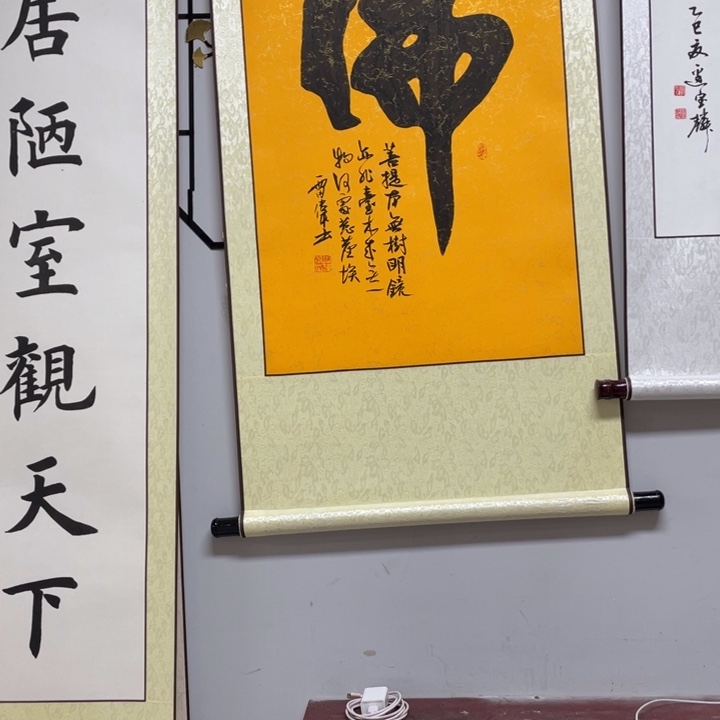 居陋室觀天下
佛
菩提本無樹明鏡
亦非臺本來無一
物何處惹塵埃
乙巳夏